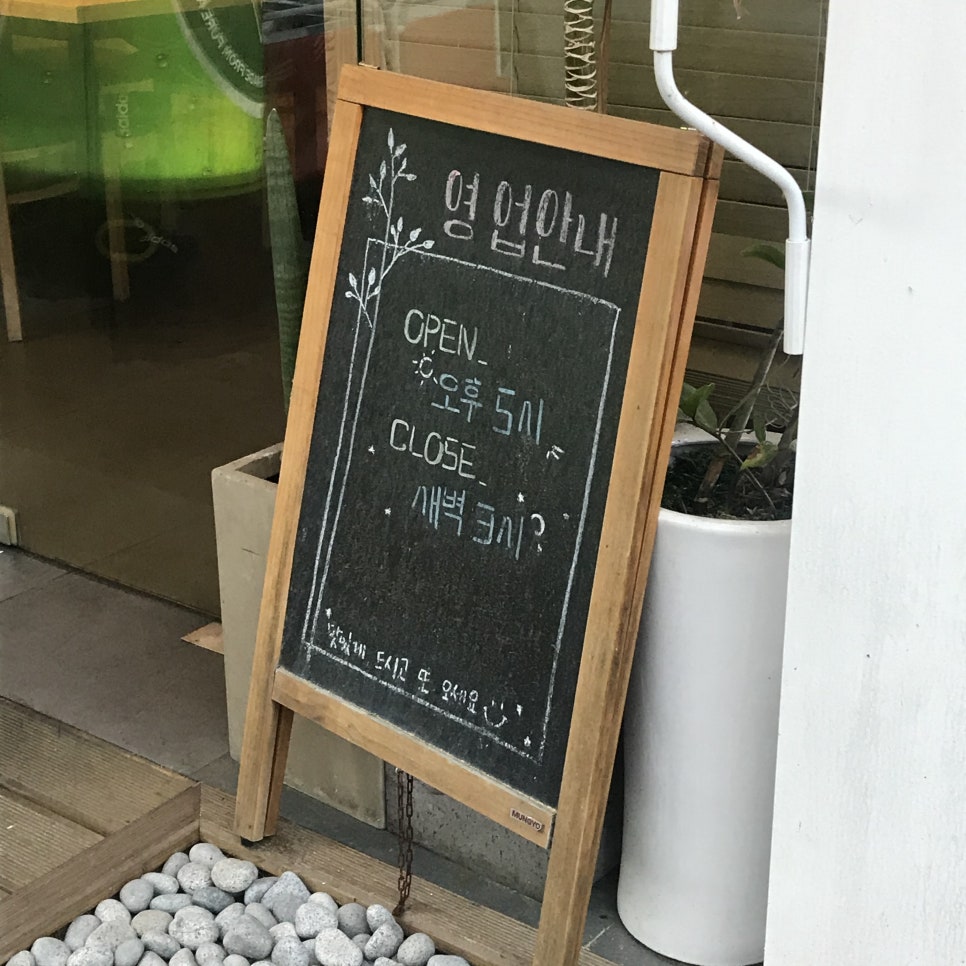 영업안내
OPEN_
오후 5시
CLOSE_
새벽 3시?
맛있게 드시고 또 오세요
MUNGYO